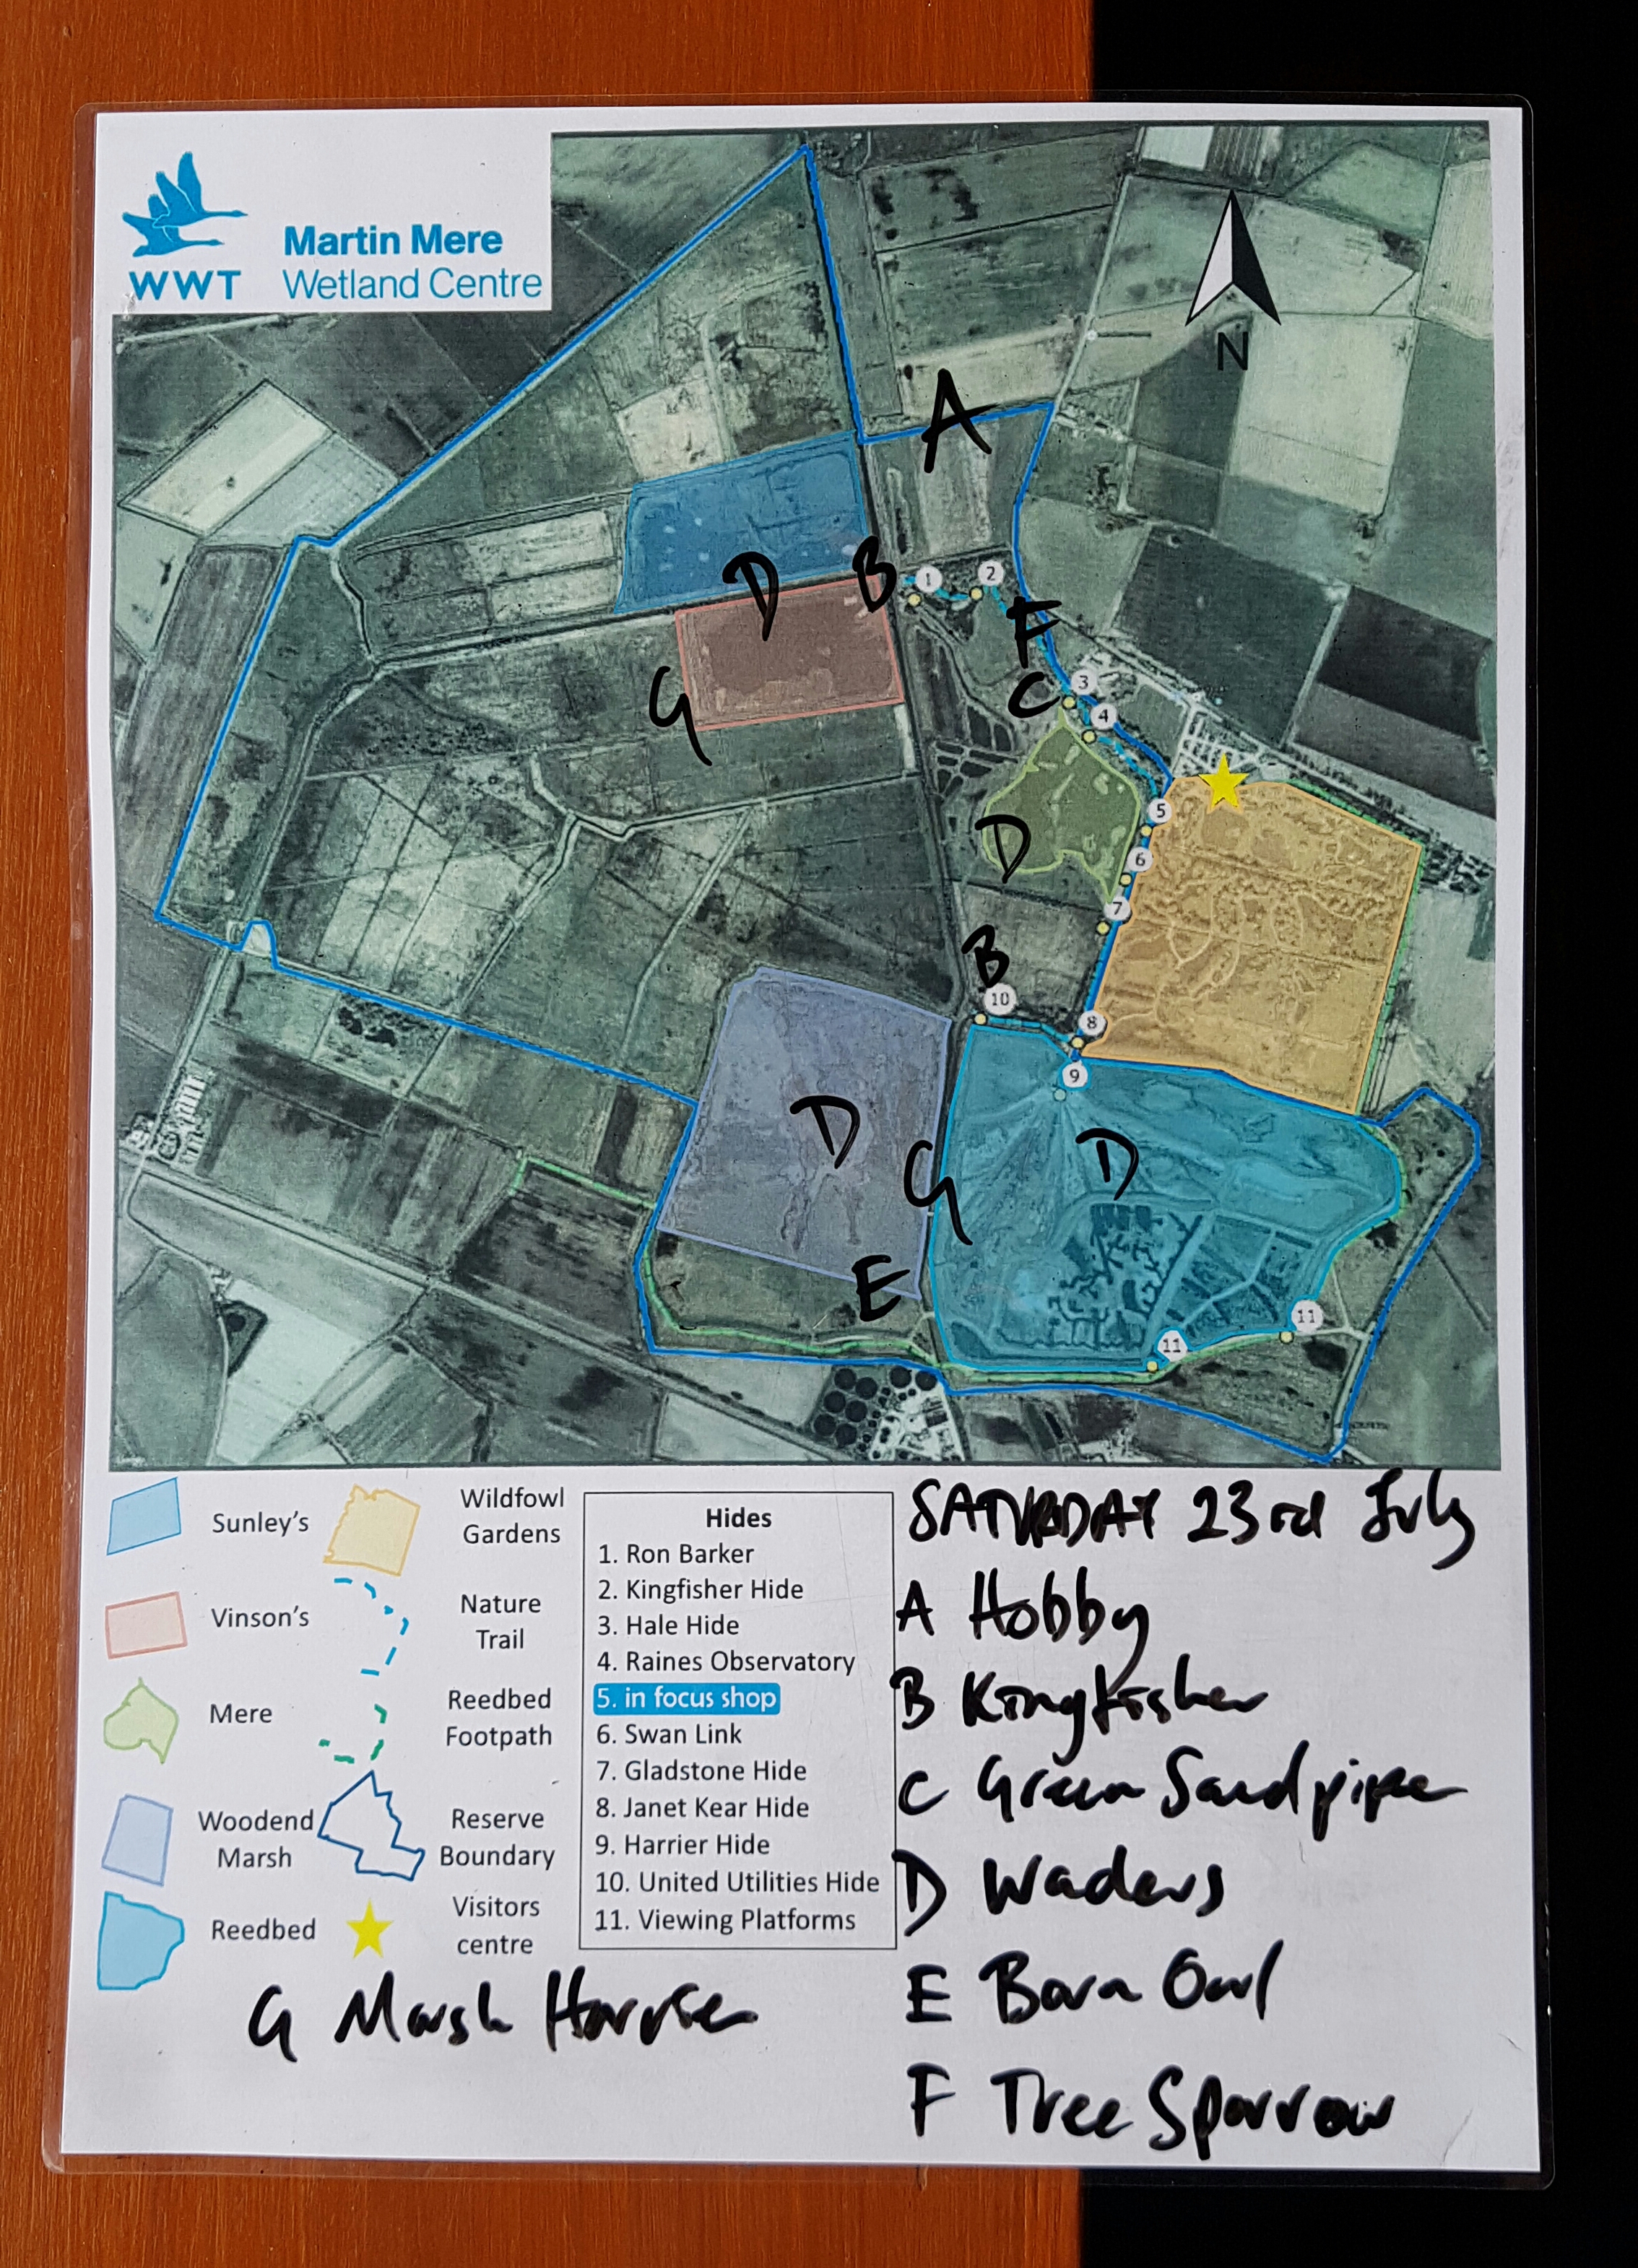 WWT
Martin Mere
Wetland Centre
N
A
B
1
2
D
F
G
C
3
4
5
D
6
7
B
10
8
9
D
D
G
E
11
11
Sunley's
Vinson's
Mere
Woodend
Marsh
Reedbed
Wildfowl
Gardens
Nature
Trail
Reedbed
Footpath
Reserve
Boundary
Visitors
centre
Hides
1. Ron Barker
2. Kingfisher Hide
3. Hale Hide
4. Raines Observatory
5. in focus shop
6. Swan Link
7. Gladstone Hide
8. Janet Kear Hide
9. Harrier Hide
10. United Utilities Hide
11. Viewing Platforms
SATURDAY 23rd July
A Hobby
B Kingfisher
C Green Sandpiper
D Waders
E Barn Owl
F Tree Sparrow
G Marsh Harrier